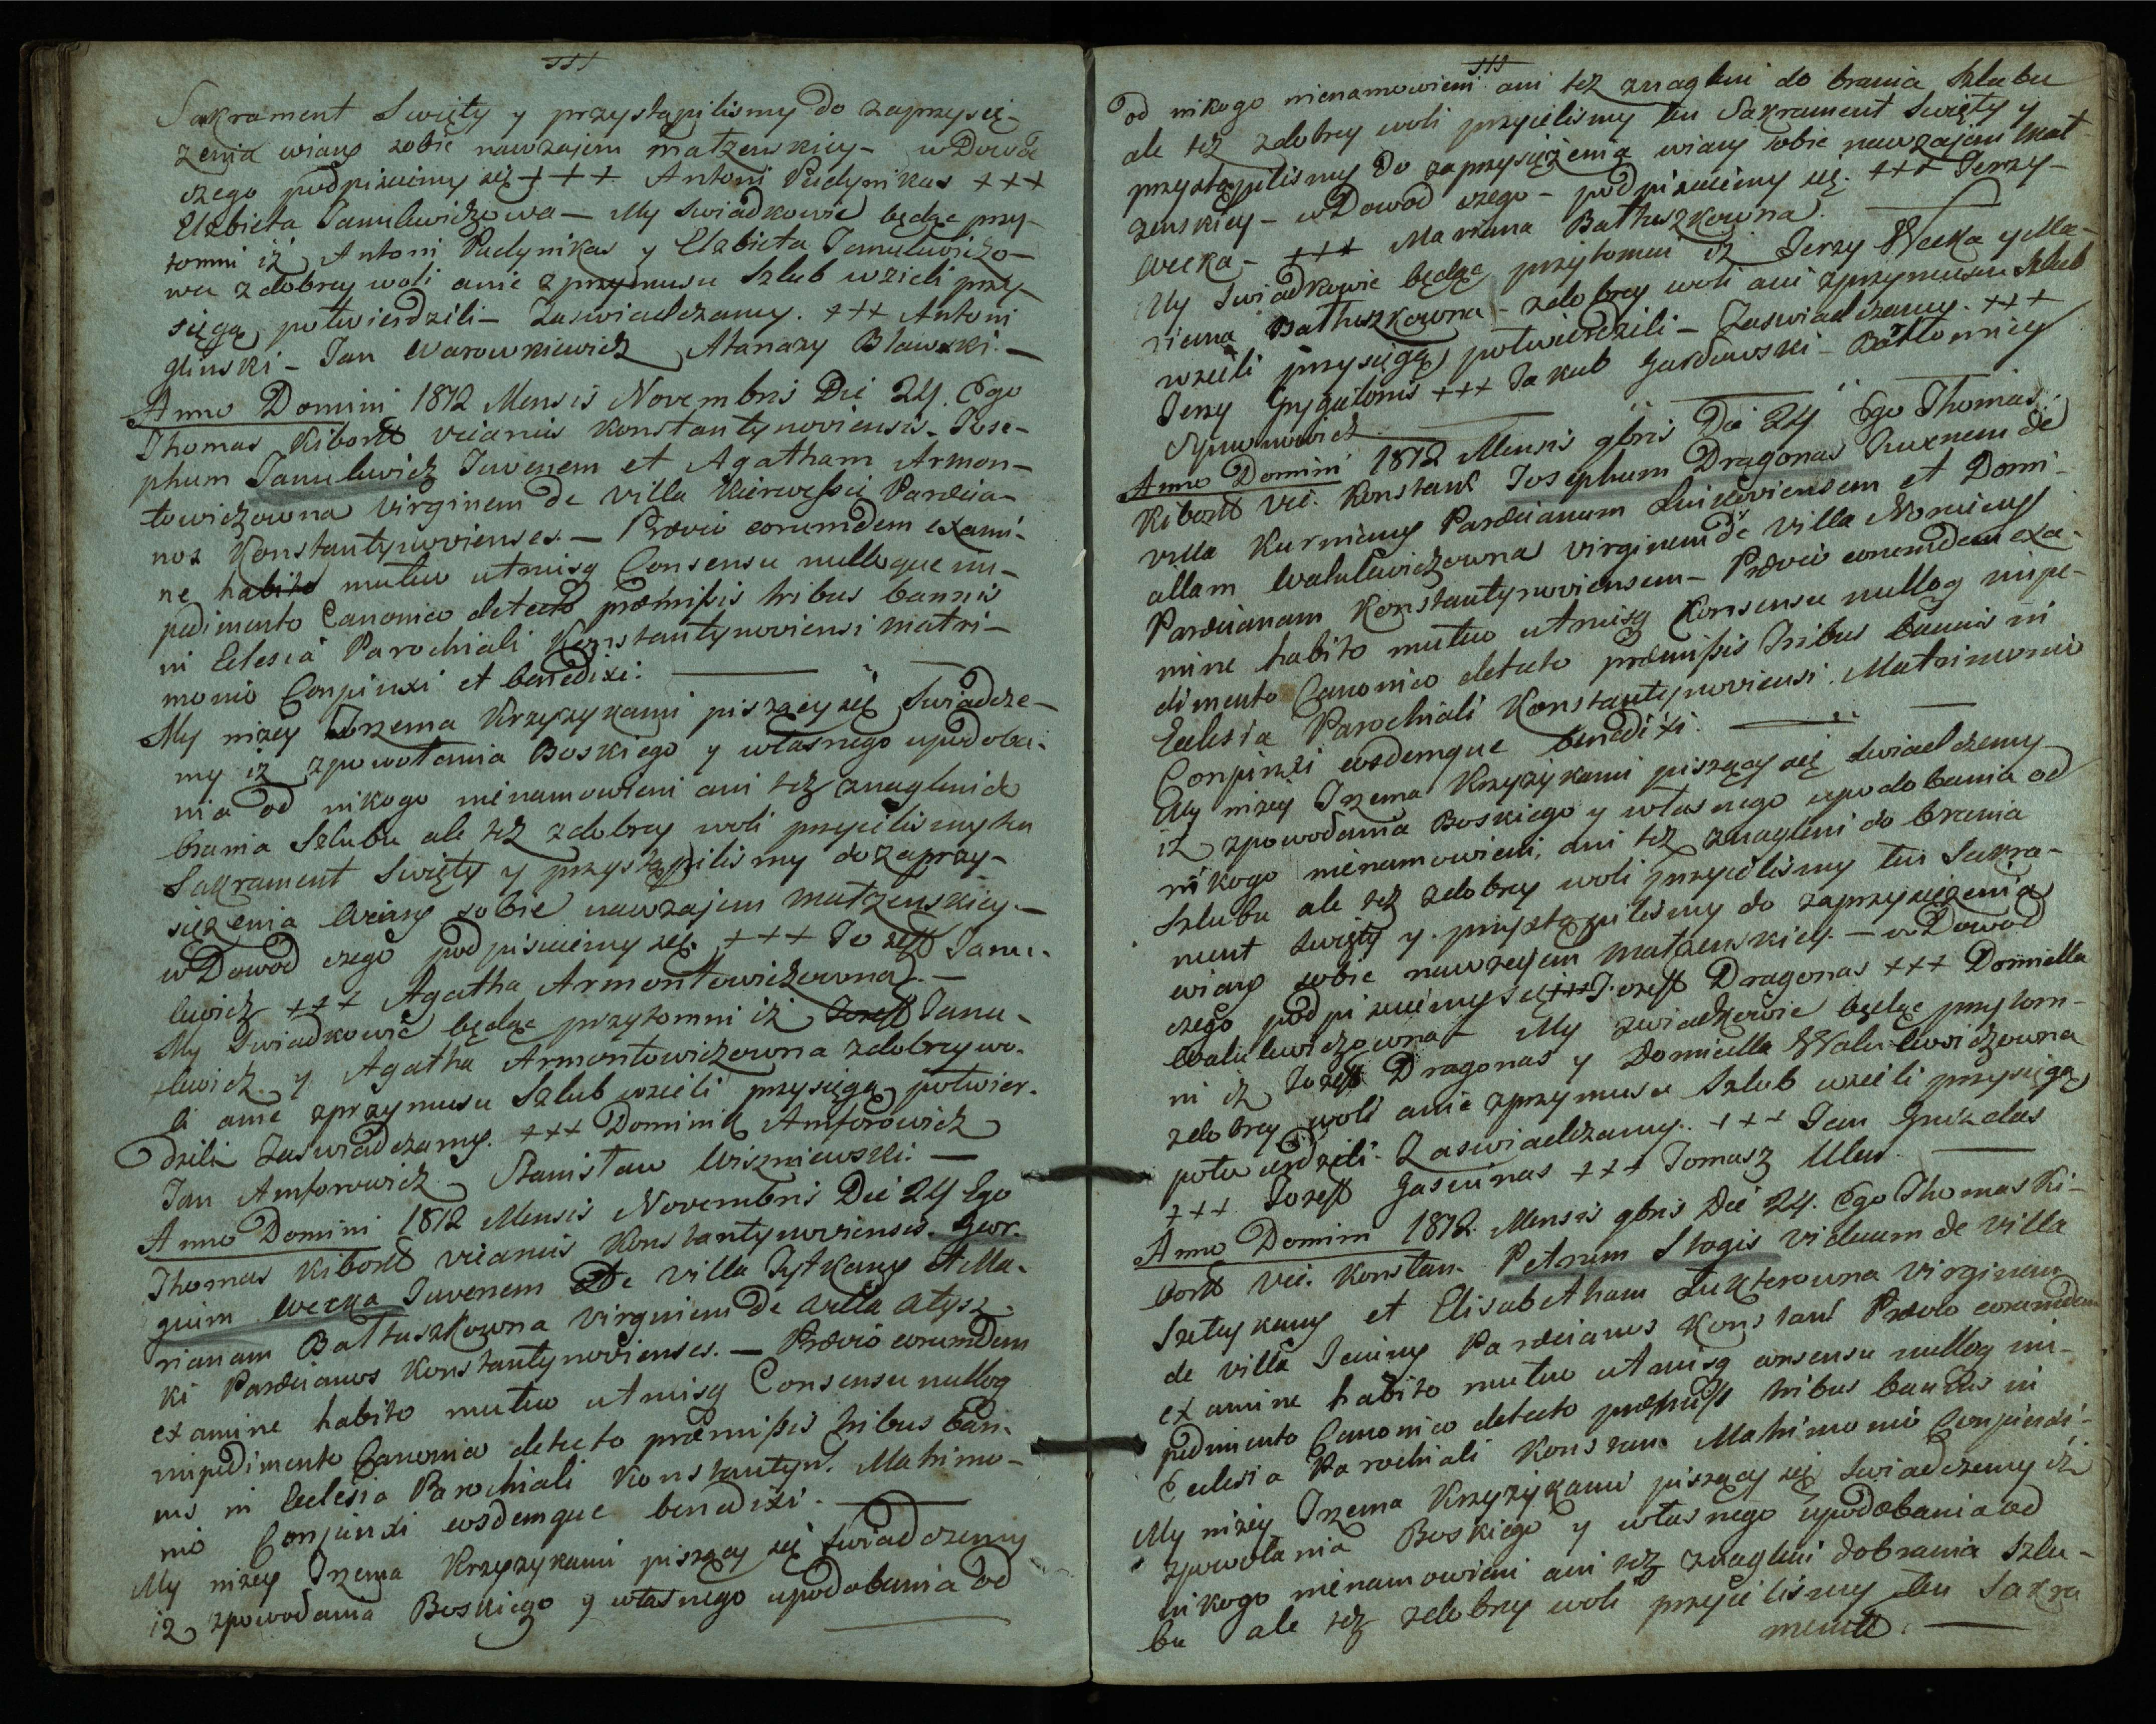 Sakrament Swięty y przystąpilismy do zaprzysię-
zenia wiary sobie nawzajem małzenskiey - w Dowod
czego podpisuiemy się +++ Antoni Pudynikas +++
Elzbieta Januliewiczowa — My Swiadkowie będąc przy-
tomni iż Antoni Pudynikas y Elzbieta Janulewiczo-
wa z dobrey woli anie z przymusu Szlub wzieli przy-
sięgą potwierdzili - Zaswiadczamy. +++ Antoni
Glinski - Jan Warowkiewicz Atanazy Bławski. —
Anno Domini 1812 Mensis Novembris Die 24. Ego
Thomas Kibortt vicarius Konstantynoviensis - Jose-
phum Janulewicz Juvenem et Agatham Armon-
towiczowna Virginem de Villa Kierwessii Parœcia-
nos Konstantynovienses. — Prævio eorumdem exami-
ne habito mutuo utriusq Consensu nulloque im-
pedimento Canonico detecto præmissis tribus bannis
in Eclesia Parochiali Konstantynoviensi matri-
monio Conjunxi et benedixi. —
My nizey Trzema Krzyzykami piszący się Swiadcze-
my iz zpowołania Boskiego y własnego upodoba-
nia od nikogo nienamowieni ani też znagleni do
brania Szlubu ale też zdobrey woli przyielismy ten
Sakrament Swięty y przystąpilismy do zaprzy-
siężenia wiary sobie nawzajem małzenskiey. —
w Dowod czego podpisuiemy się. +++ Jozeff Janu-
lewicz +++ Agatha Armontowiczowna. —
My Swiadkowie będąc przytomni iż Jozeff Janu-
lewicz y Agatha Armontowiczowna zdobrey wo-
li anie zprzymusu Szlub wzieli przysięgą potwier-
dzili Zaswiadczamy. +++ Dominik Amforowicz
Jan Amforowicz - Stanisław Wiszniewski. —
Anno Domini 1812 Mensis Novembris Die 24 Ego
Thomas Kibortt vicarius Konstantynoviensis. Geor-
gium Wecka Juvenem De Villa Tytkany et Ma-
rianam Bałtuszkowna Virginem de Villa Atysz-
ki Parœcianos Konstantynovienses. — Prævio eorumdem
examine habito mutuo utriusq Consensu nulloq
impedimento Canonico detecto præmissis tribus ban-
nis in Eclesia Parochiali Konstantyn. Matrimo-
nio Conjunxi eosdemque benedixi. —
My nizey Trzema Krzyzykami piszący się Swiadczemy
iz zpowodania Boskiego y własnego upodobania od
od nikogo nienamowieni ani też znagleni do brania Szlubu
ale też zdobrey woli przyielismy ten Sakrament Swięty y
przystąpilismy Do zaprzysiężenia wiary sobie nawzajem Mał-
zenskiey - w Dowod czego - podpisuiemy się. +++ Jerzy -
Wecka - +++ Mariana Bałtuszkowna. —
My Swiadkowie będąc przytomni iż Jerzy Wecka y Ma-
rianna Bałtuszkowna - zdobrey woli ani zprzymusu Szlub
wzieli przysięgą potwierdzili - Zaswiadczamy. +++
Jerzy Grygulonis +++ Jakub Gardowski - Bałtomiey
Szymonowicz —
Anno Domini 1812 Mensis 9bris Die 24 Ego Thomas
Kibortt vic. Konstant Josephum Dragonas Juvenem de
villa Kurmiany Parœcianum et Domi-
allam Walulewiczowna virginem de villa
Parœcianam Konstantynoviensem - Prævio eorumdem exa-
mine habito mutuo utriusq Consensu nulloq impe-
dimento Canonico detecto præmissis Tribus bannis in
Eclesia Parochiali Konstantynoviensi Matrimonio
Conjunxi eosdemque benedixi. —
My nizey Trzema Krzyzykami piszący się Swiadczemy
iz zpowodania Boskiego y własnego upodobania od
nikogo nienamowieni, ani też znagleni do brania
Szlubu ale też zdobrey woli przyielismy ten Sakra-
ment swięty y przystąpilismy do zaprzysiężenia
wiary sobie nawzajem małzenskiey. — w Dowod
czego podpisuiemy się +++ Jozeff Dragonas +++ Domicella
Walulewiczowna - My swiadkowie będąc przytom-
ni iż Jozeff Dragonas y Domicella Walulewiczowna
zdobrey woli anie zprzymusu Szlub wzieli przysięgą
potwierdzili - Zaswiadczamy. +++ Jan Gruzdas
+++ Jozeff Gasiunas +++ Tomasz Ulew. —
Anno Domini 1812. Mensis 9bris Die 24. Ego Thomas Ki-
bortt vic. Konstan. Petrum Stogis viduum de villa
Szetuykany et Elisabetham Lukterowna Virginem
de villa Jeniny Parœcianos Konstant Prævio eorumdem
examine habito mutuo utriusq consensu nulloq im-
pedimento Canonico detecto præmiss tribus bannis in
Eclesia Parochiali Konstan. Matrimonio Conjunxi -
My nizey Trzema Krzyzykami piszący się swiadczemy iż
zpowołania Boskiego y własnego upodobania od
nikogo nienamowieni ani też znagleni do brania Szlu-
bu ale też zdobrey woli przyielismy ten Sakra
mentt. —